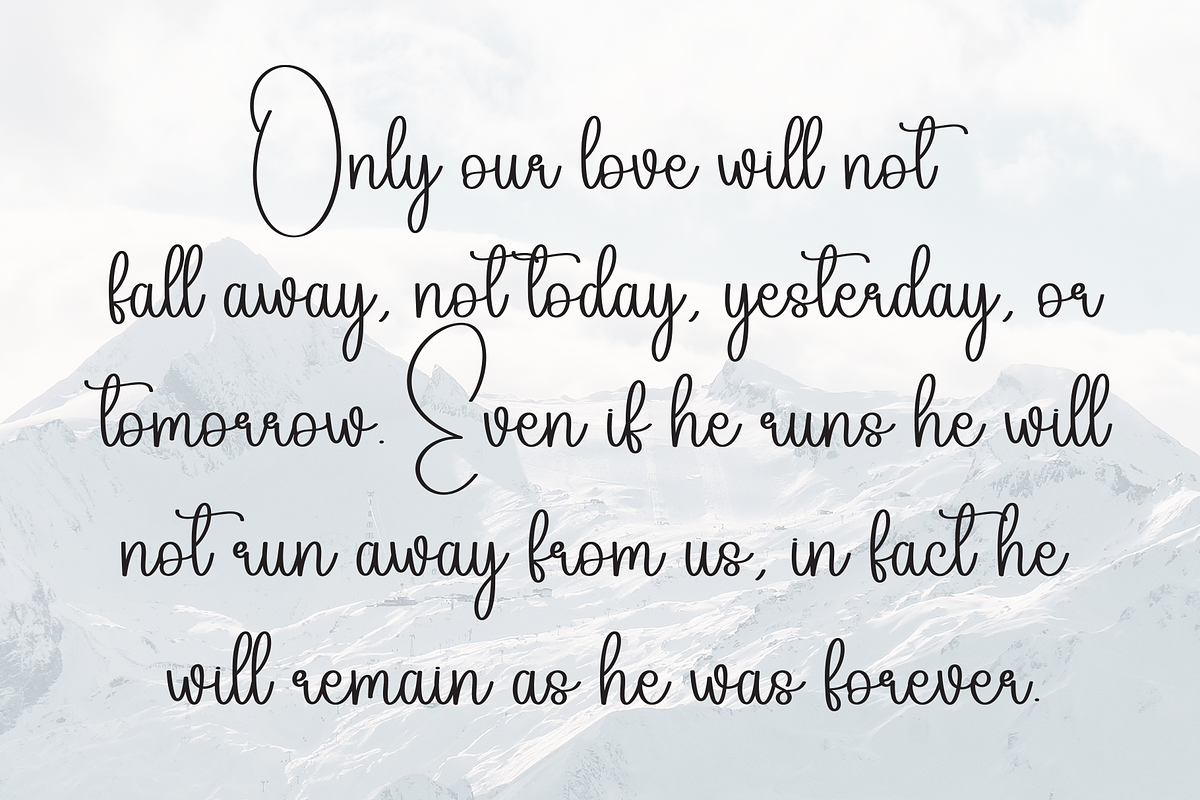 Only our love will not
fall away, not today, yesterday, or
tomorrow. Even if he runs he will
not run away from us, in fact he
will remain as he was forever.